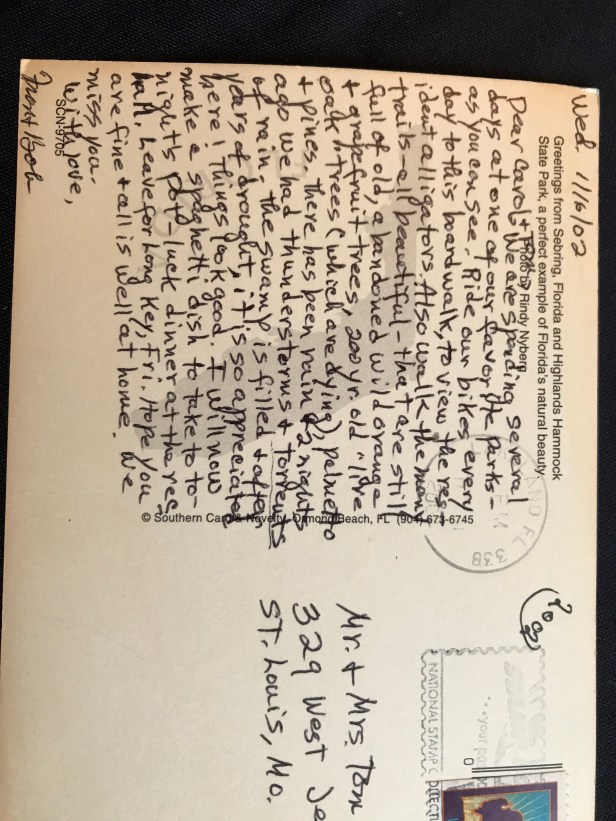 Wed. 1/16/02
Greetings from Sebring, Florida and Highlands Hammock
State Park, a perfect example of Florida's natural beauty
Photo by Rindy Nyberg
Dear Carol + Tom, We are spending several
days at one of our favorite parks -
as you can see. Ride our bikes every
day to this boardwalk, to view the res-
ident alligators. Also walk the many
trails - all beautiful - that are still
full of old, abandoned wild orange
+ grapefruit trees, 200 yr. old "live
oak" trees (which are dying) palmetto
+ pines. There has been rain + 2 nights
ago we had thunderstorms + torrents
of rain. The swamp is filled + after
years of drought, it is so appreciated
here! Things look good. I will now
make a spaghetti dish to take to to-
night's pot-luck dinner at the rec
hall. Leave for Long Key, Fri. Hope you
are fine + all is well at home. We
miss you.
With love,
SCN-9705
© Southern Card & Novelty, Ormond Beach, FL (904) 673-6745
LAND FL
338
NATIONAL STAMP
...your
Mr. + Mrs. Tom
329 West Je
St. Louis, Mo.